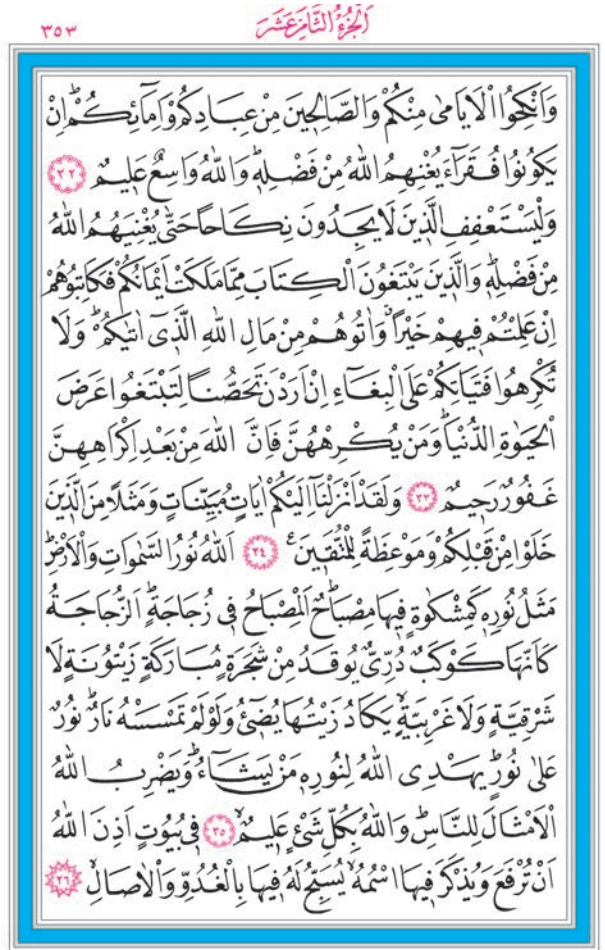 اَلْجُزْءُ الثَّامِنَ عَشَرَ
٣٥٣
وَاَنْكِحُوا الْاَيَامٰى مِنْكُمْ وَالصَّالِحِينَ مِنْ عِبَادِكُمْ وَاِمَٓائِكُمْۜ اِنْ
يَكُونُوا فُقَرَٓاءَ يُغْنِهِمُ اللّٰهُ مِنْ فَضْلِهِۜ وَاللّٰهُ وَاسِعٌ عَلِيمٌ ﴿٣٢﴾
وَلْيَسْتَعْفِفِ الَّذِينَ لَا يَجِدُونَ نِكَاحًا حَتّٰى يُغْنِيَهُمُ اللّٰهُ
مِنْ فَضْلِهِۜ وَالَّذِينَ يَبْتَغُونَ الْكِتَابَ مِمَّا مَلَكَتْ اَيْمَانُكُمْ فَكَاتِبُوهُمْ
اِنْ عَلِمْتُمْ فِيهِمْ خَيْرًاۗ وَاٰتُوهُمْ مِنْ مَالِ اللّٰهِ الَّذِٓي اٰتٰيكُمْۜ وَلَا
تُكْرِهُوا فَتَيَاتِكُمْ عَلَى الْبِغَٓاءِ اِنْ اَرَدْنَ تَحَصُّنًا لِتَبْتَغُوا عَرَضَ
الْحَيٰوةِ الدُّنْيَاۜ وَمَنْ يُكْرِهْهُنَّ فَاِنَّ اللّٰهَ مِنْ بَعْدِ اِكْرَاهِهِنَّ
غَفُورٌ رَحِيمٌ ﴿٣٣﴾ وَلَقَدْ اَنْزَلْنَٓا اِلَيْكُمْ اٰيَاتٍ مُبَيِّنَاتٍ وَمَثَلًا مِنَ الَّذِينَ
خَلَوْا مِنْ قَبْلِكُمْ وَمَوْعِظَةً لِلْمُتَّقِينَ۟ ﴿٣٤﴾ اَللّٰهُ نُورُ السَّمٰوَاتِ وَالْاَرْضِۜ
مَثَلُ نُورِهِ كَمِشْكٰوةٍ فِيهَا مِصْبَاحٌۜ اَلْمِصْبَاحُ فِي زُجَاجَةٍۜ اَلزُّجَاجَةُ
كَاَنَّهَا كَوْكَبٌ دُرِّيٌّ يُوقَدُ مِنْ شَجَرَةٍ مُبَارَكَةٍ زَيْتُونَةٍ لَا
شَرْقِيَّةٍ وَلَا غَرْبِيَّةٍۙ يَكَادُ زَيْتُهَا يُضِٓيءُ وَلَوْ لَمْ تَمْسَسْهُ نَارٌۜ نُورٌ
عَلٰى نُورٍۜ يَهْدِي اللّٰهُ لِنُورِهِ مَنْ يَشَٓاءُۜ وَيَضْرِبُ اللّٰهُ
الْاَمْثَالَ لِلنَّاسِۜ وَاللّٰهُ بِكُلِّ شَيْءٍ عَلِيمٌۙ ﴿٣٥﴾ فِي بُيُوتٍ اَذِنَ اللّٰهُ
اَنْ تُرْفَعَ وَيُذْكَرَ فِيهَا اسْمُهُۙ يُسَبِّحُ لَهُ فِيهَا بِالْغُدُوِّ وَالْاٰصَالِۙ ﴿٣٦﴾